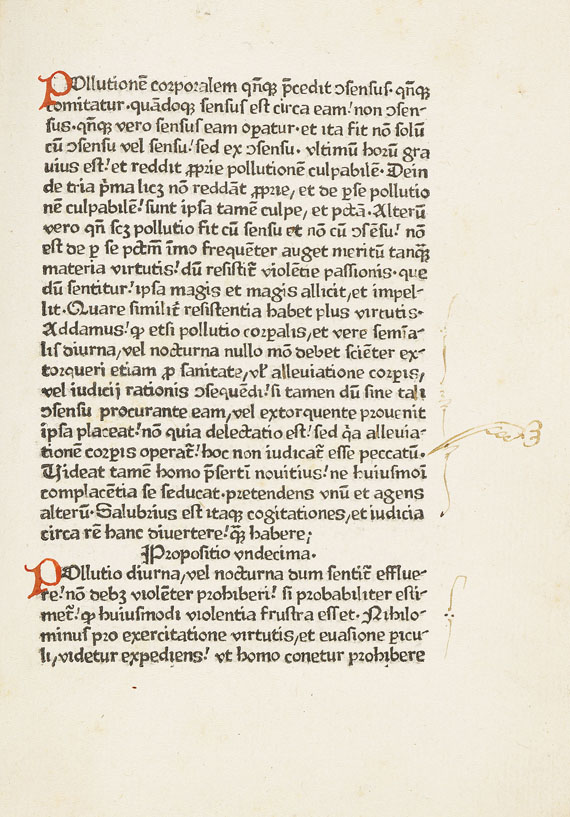 POllutionē corporalem qñqꝫ p̄cedit ↄsensus· qñqꝫ
comitatur·quādoqꝫ sensus est circa eam! non ↄsen-
sus·qñqꝫ vero sensus eam oꝑatur·et ita fit nō solū
cū ↄsensu vel sensu! sed ex ↄsensu· vltimū horū gra
uius est! et reddit ꝓprie pollutionē culpabilē· Dein
de tria p̄ma licꝫ nō reddāt ꝓprie, et de ꝑse pollutio
nē culpabilē! sunt ipsa tamē culpe, et pctā· Alterū
vero qñ scꝫ pollutio fit cū sensu et nō cū ↄsēsu! nō
est de ꝑ se pctm̄ īmo frequēter auget meritū tanqꝫ̄
materia virtutis! dū resistit̄ violētie passionis· que
dū sentitur! ipsa magis et magis allicit, et impel-
lit· Quare similit̄ resistentia habet plus virtutis·
Addamus! ꝙ etsi pollutio corꝑalis, et vere semīa-
lis diurna, vel nocturna nullo mō debet sciēter ex-
torqueri etiam ꝓ sanitate, vl̓ alleuiatione corꝑis,
vel iudicij rationis ↄsequēdi! si tamen dū sine tali
ↄsensu procurante eam, vel extorquente prouenit
ipsa placeat! nō quia delectatio est! sed q̓a alleuia-
tionē corꝑis operat̄! hoc non iudicat̄ esse peccatū·
Uideat tamē homo p̄serti nouitius! ne huiusmōi
complacētia se seducat· pretendens vnū et agens
alterū· Salubrius est itaqꝫ cogitationes, et iudicia
circa rē hanc diuertere! qꝫ̄ habere;
Propositio vndecima·
POllutio diurna, vel nocturna dum sentit̄ efflue-
re! nō debꝫ violēter prohiberi! si probabiliter esti-
met̄! ꝙ huiusmodi violentia frustra esset· Nihilo-
minus pro exercitatione virtutis, et euasione ꝑicu-
li, videtur expediens! vt homo conetur prohibere